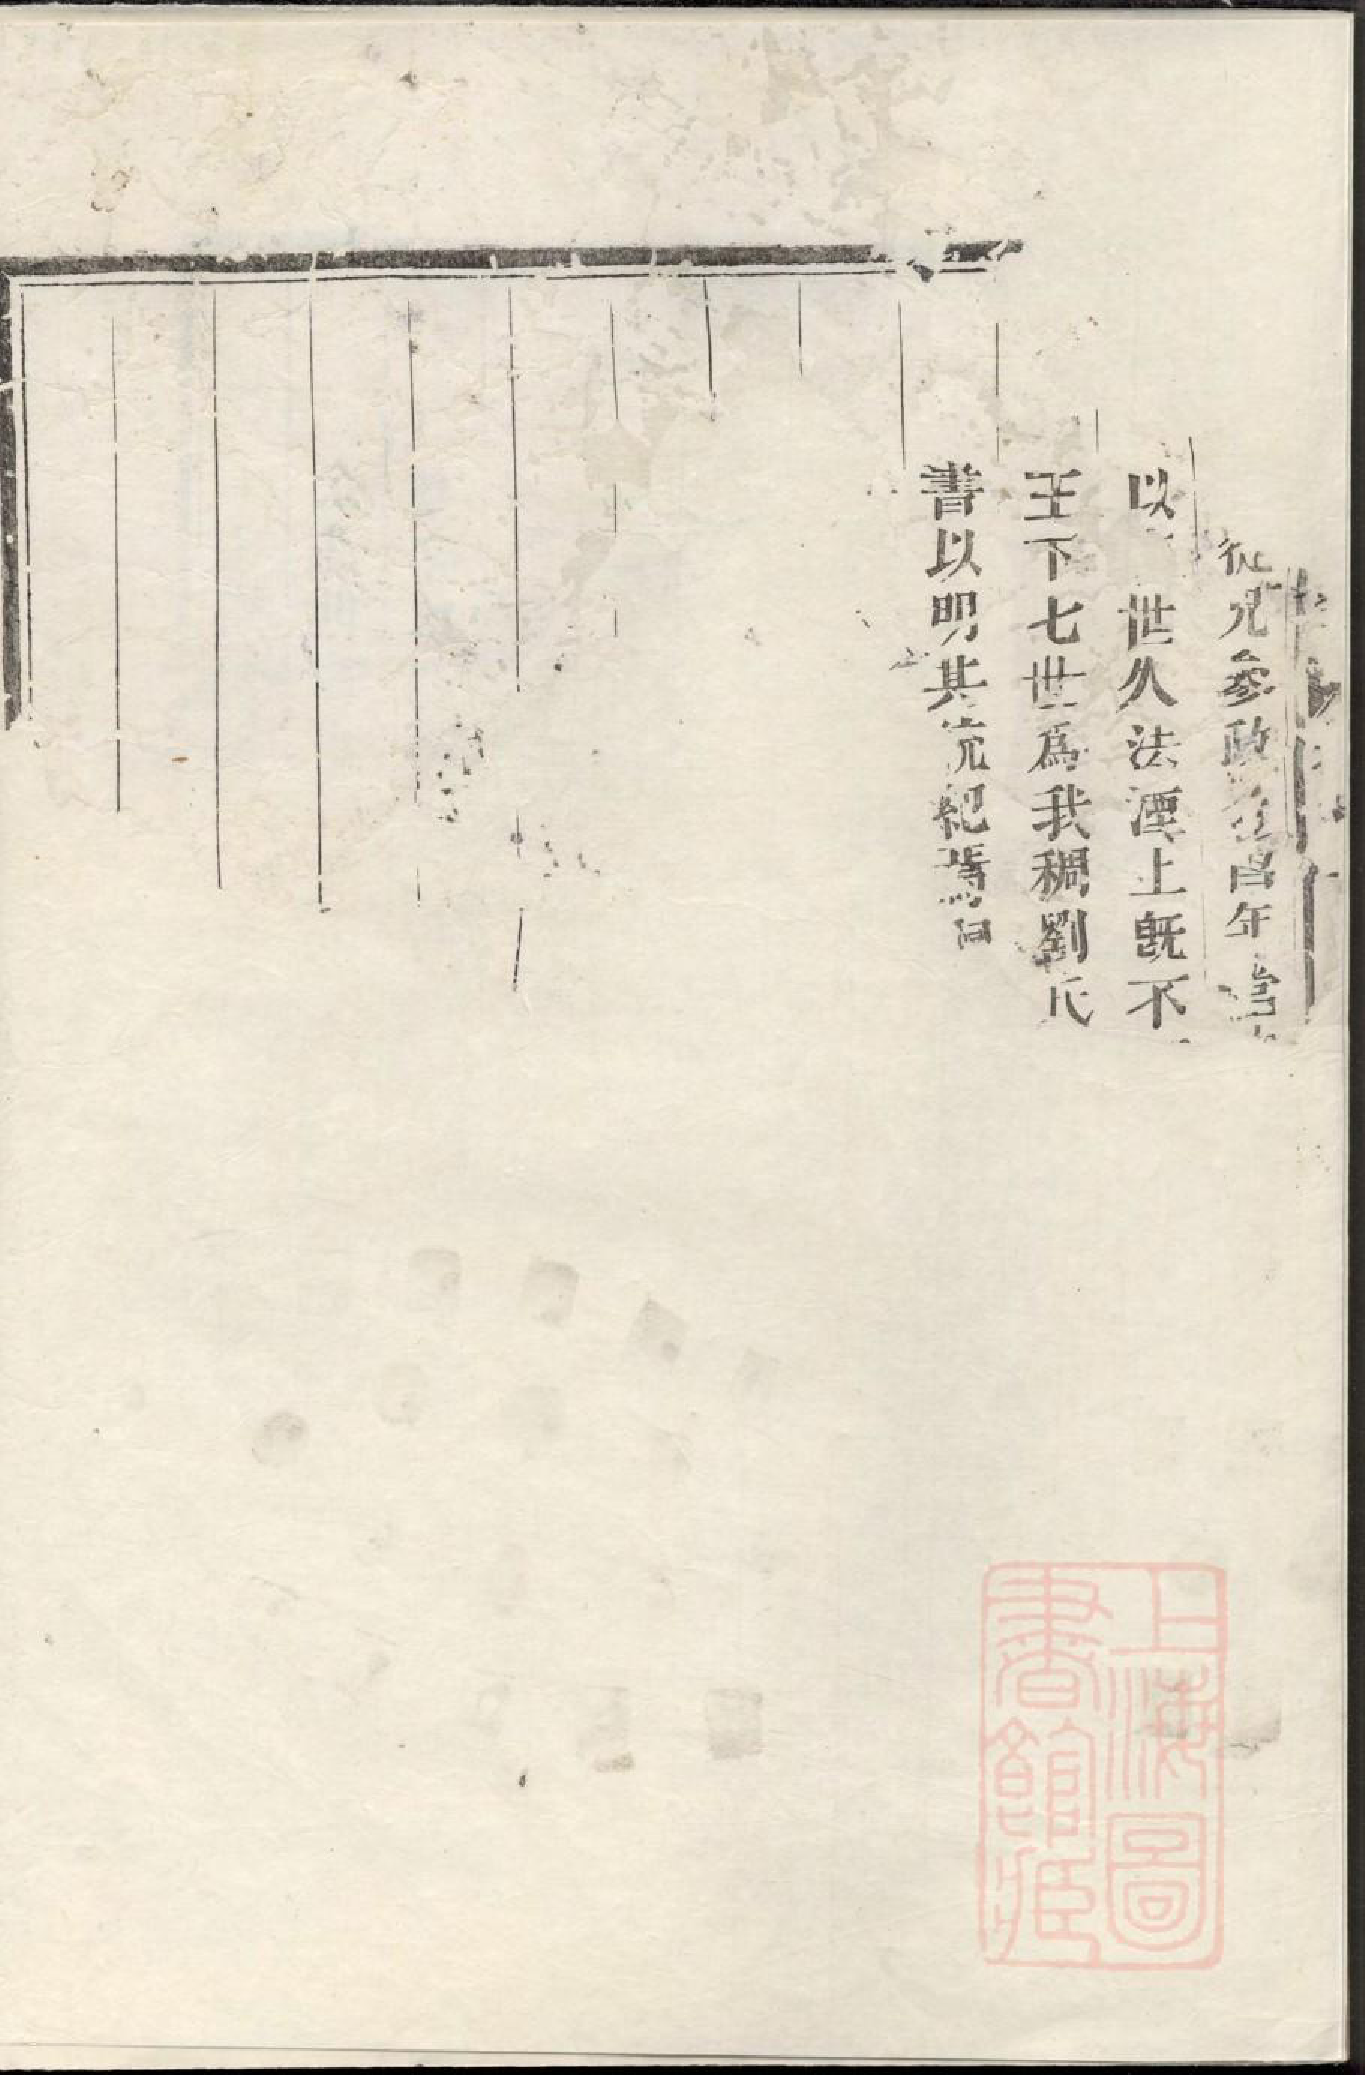 從兄參政 昌年當
以 世久法湮上旣不
王下七世爲我稠劉氏
書以明其統紀焉
上海圖
書館藏